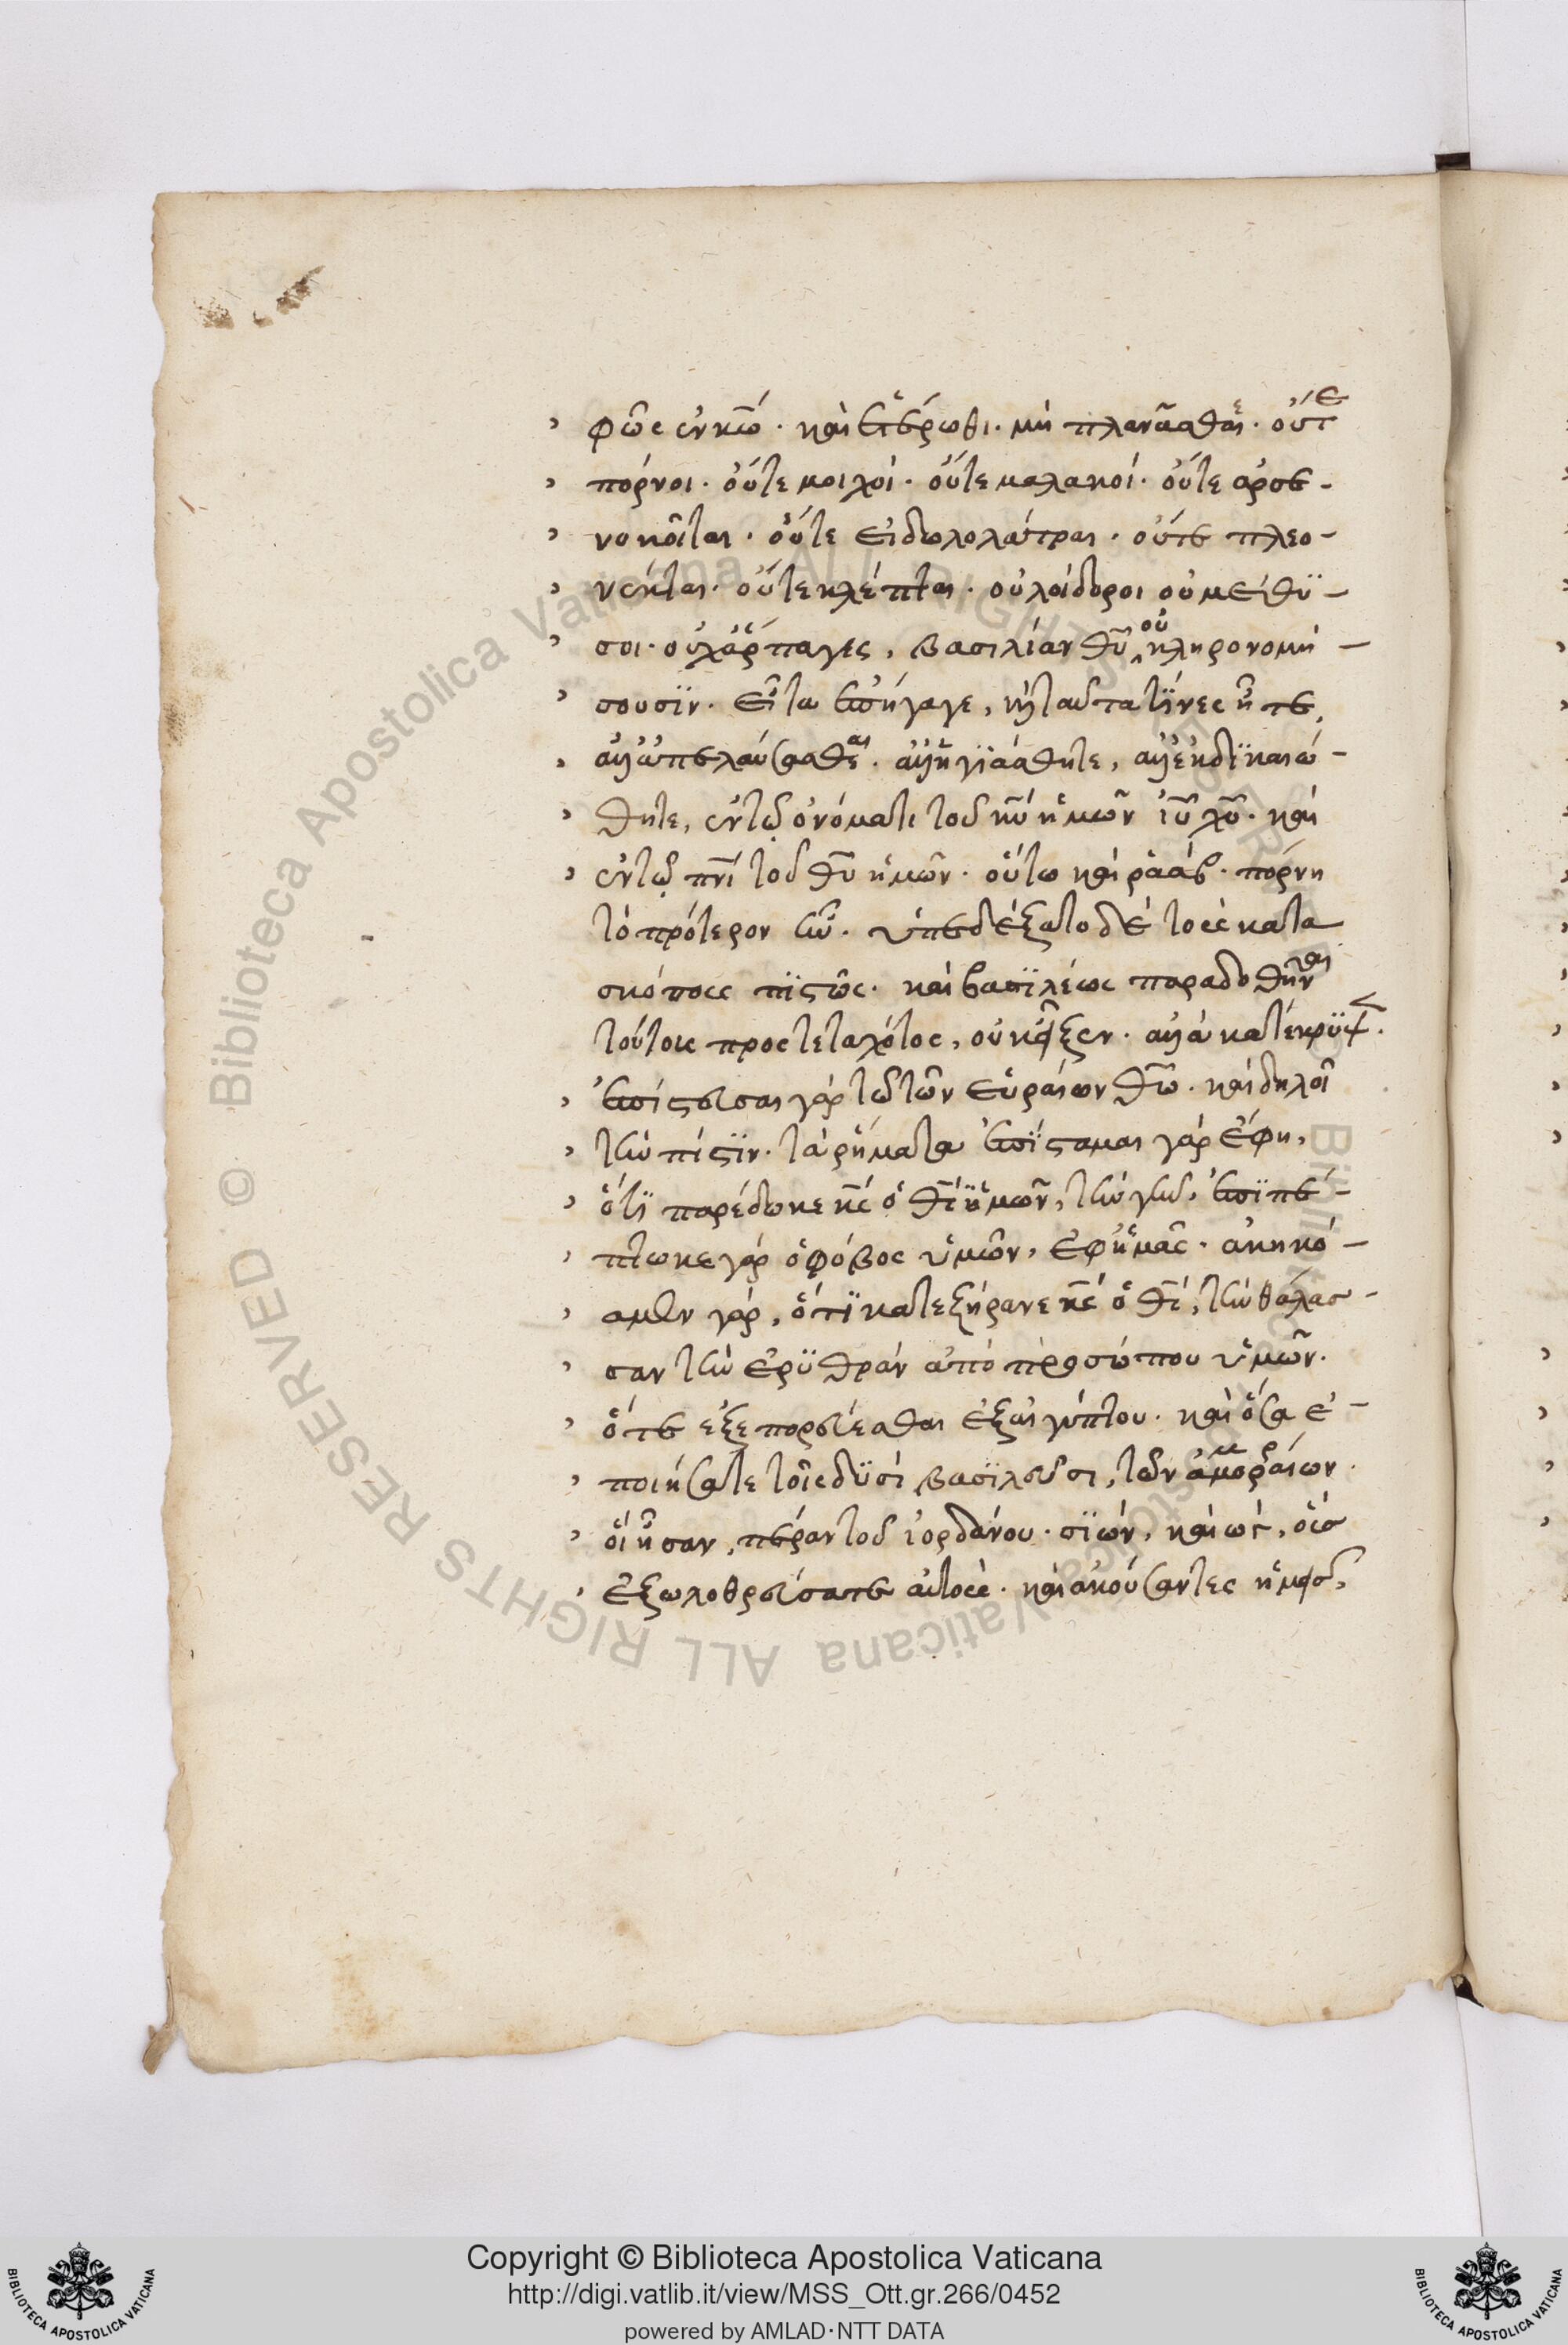 φῶς ἐν κῶ. καὶ ἑτέρωθι. μὴ πλανᾶσθαι. οὔτε
πόρνοι. οὔτε μοιχοί. οὔτε μαλακοί. οὔτε ἀρσε-
νοκοῖται. οὔτε εἰδωλολάτραι. οὔτε πλεο-
νέκται. οὔτε κλέπται. οὐ λοίδοροι οὐ μέθϋ-
σοι. οὐχ ἅρπαγες, βασιλίαν θῦ οὐ κληρονομή-
σουσϊν. εἶτα ἐπήγαγε, κỳ ταῦτα τϊνες ἦτε,
ἀλλ' ἀπελούσασθε. ἀλλ' ἡγϊάσθητε, ἀλλ' ἐκδϊκαιώ-
θητε, ἐν τῷ ὀνόματι τοῦ κῦ ἡμῶν ἰῦ χῦ. καὶ
ἐν τῷ πνὶ τοῦ θῦ ἡμῶν. οὕτω καὶ ῥαάβ. πόρνη
τὸ πρότερον ἦν. ὑπεδέξατο δὲ τοὺς κατα
σκόπους πϊστῶς. καὶ βασϊλέως παραδοθῆναι
τούτους προστεταχότος, οὐκ εἶξεν. ἀλλὰ κατέκρϋψ.
ἐπίστευσαι γὰρ τῷ τῶν εὑραίων θῶ. καὶ δηλοῖ
τὴν πίστϊν. τὰ ῥήματα ἐπϊσταμαι γὰρ ἔφη,
ὅτϊ παρέδωκε κς ὁ θς ἡμῶν, τὴν γῆν, ἐπϊπέ-
πτωκε γὰρ ὁ φόβος ὑμῶν, ἐφ ἡμᾶς. ἀκηκό-
αμεν γάρ, ὅτϊ κατεξήρανε κς ὁ θς, τὴν θάλασ-
σαν τὴν ἐρϋθρὰν ἀπὸ προσώπου ὑμῶν.
ὅτε εξεπορεύεσθαι ἐξ αἰγύπτου. καὶ ὅσα ἐ-
ποιήσατε τοῖς δϋσὶ βασϊλεῦσι, τῶν ἀμορραίων.
οἳ ἦσαν, πέραν τοῦ ἰορδάνου. σϊών, καὶ ὤγ, οὓσ
ἐξωλοθρεύσατε αὐτούς. καὶ ἀκούσαντες ἡμεῖς,
Copyright © Biblioteca Apostolica Vaticana
http://digi.vatlib.it/view/MSS_Ott.gr.266/0452
powered by AMLAD·NTT DATA